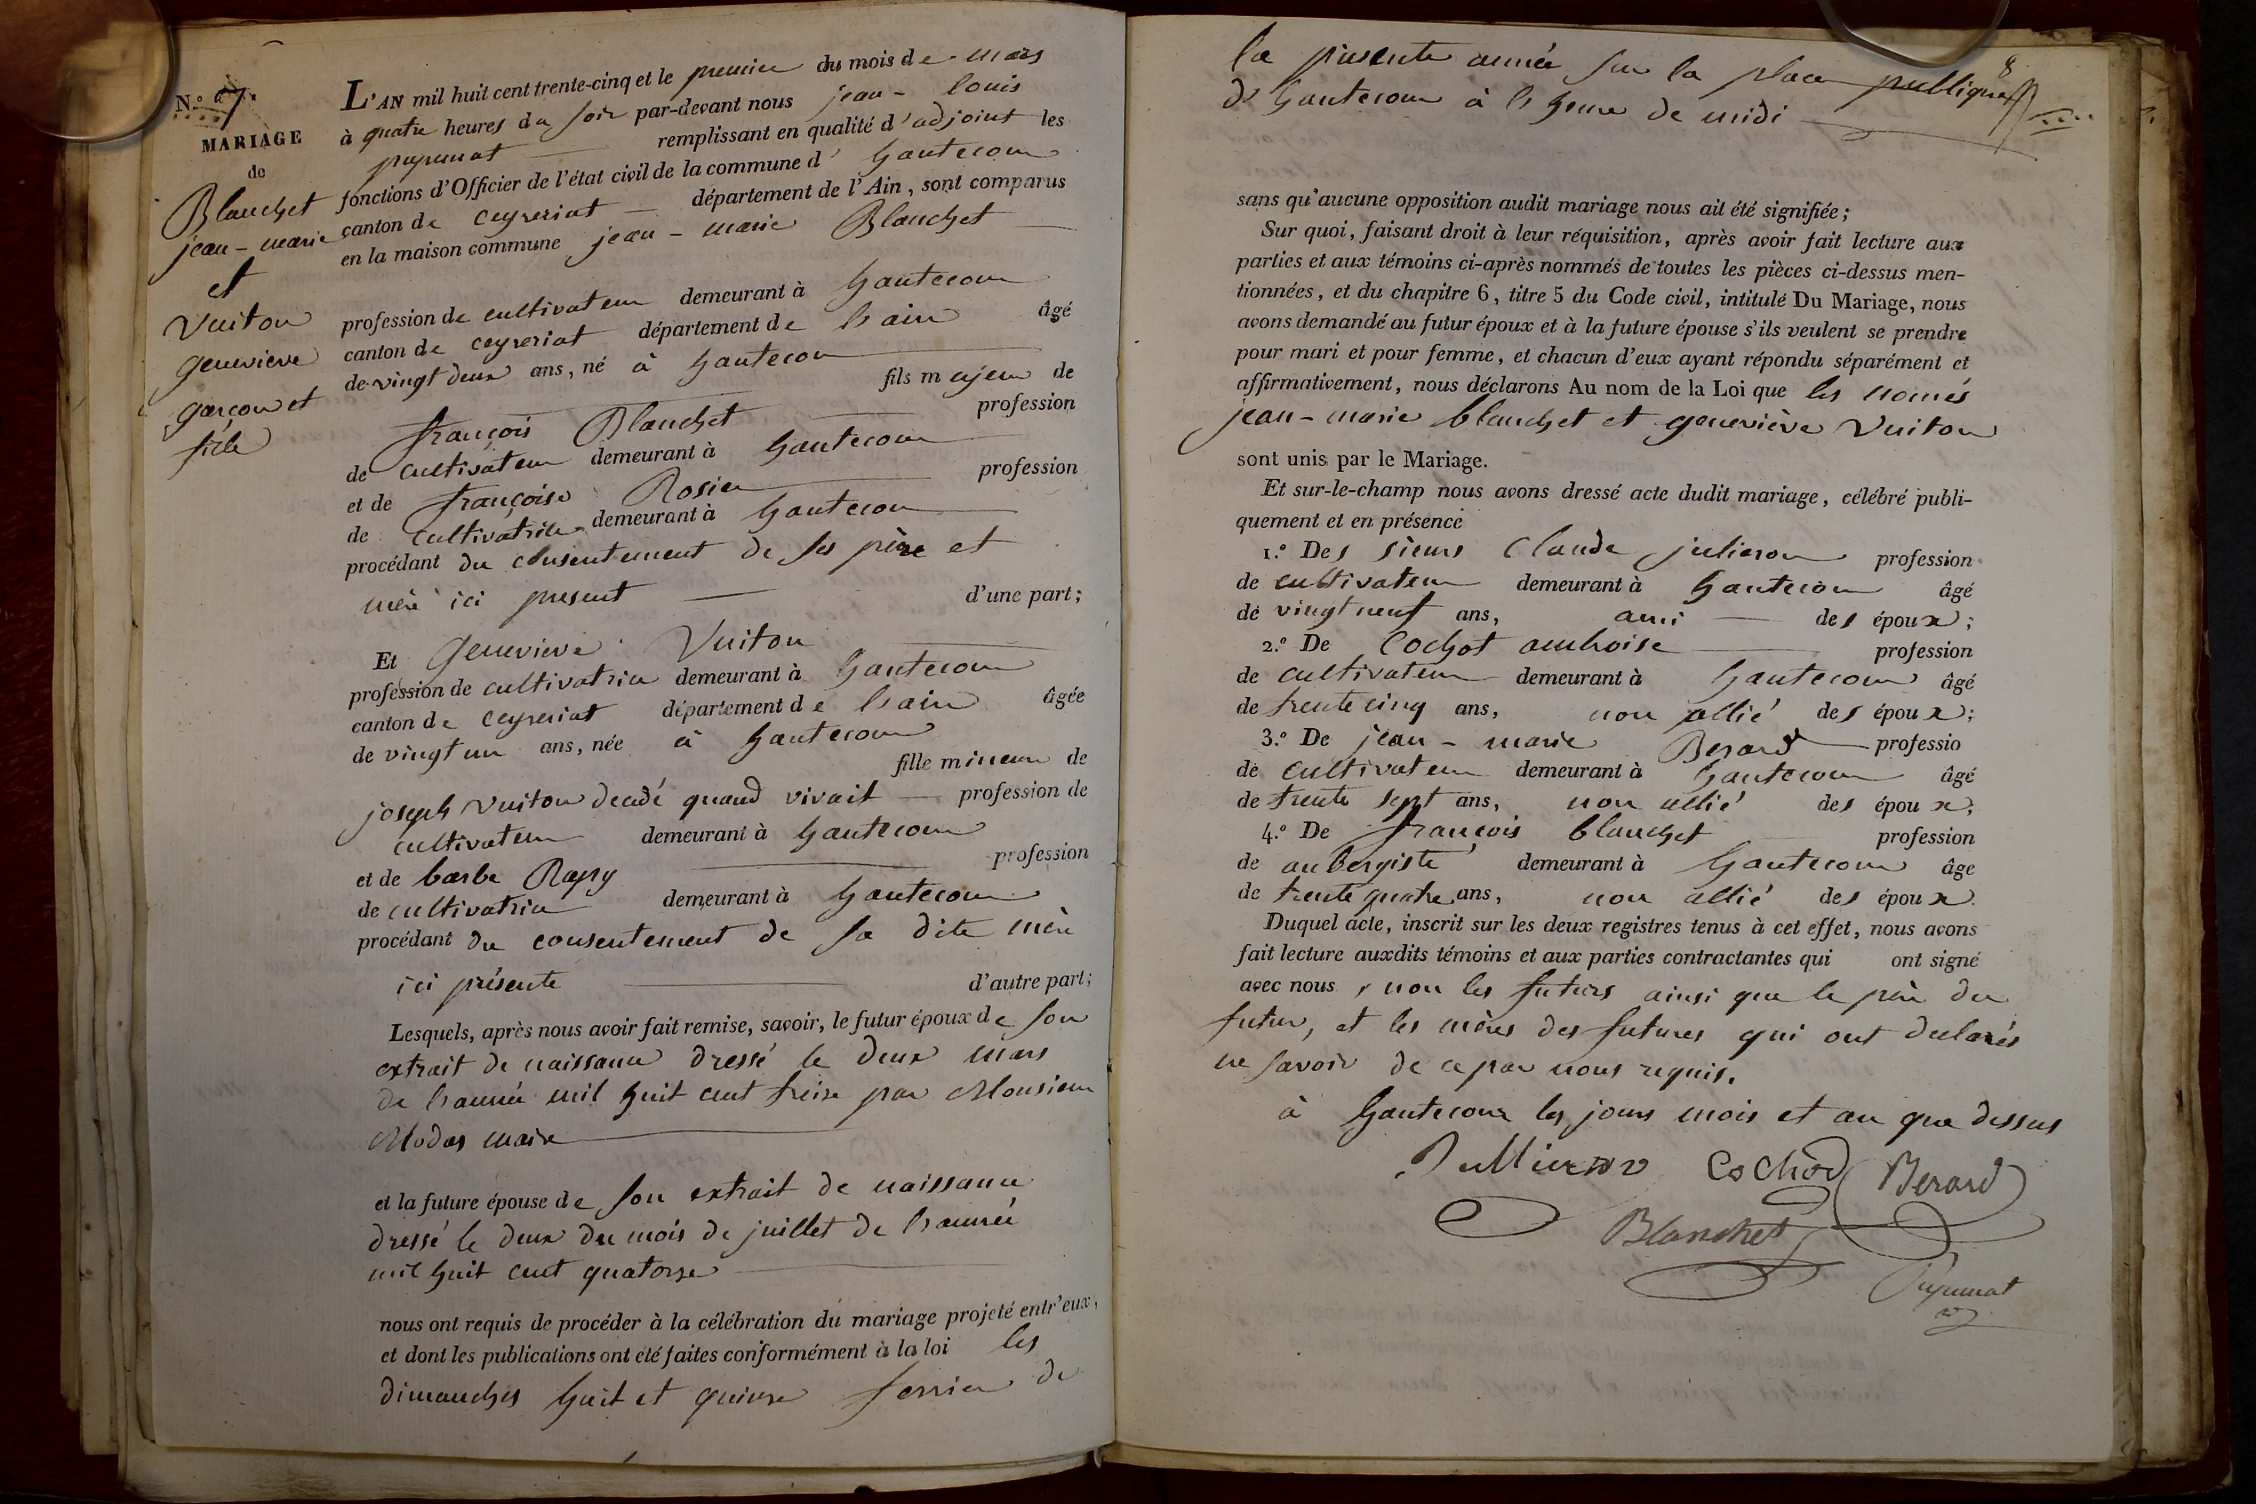 N.º 7
MARIAGE
de
Blanchet
jean - marie
et
Vuiton
genevieve
garçon et
fille
L'AN mil huit cent trente-cinq et le premier du mois de mars
à quatre heures du soir par-devant nous jean - louis
puymunat remplissant en qualité d'adjoint les
fonctions d'Officier de l'état civil de la commune d' hautecour
canton de ceyseriat département de l'Ain, sont comparus
en la maison commune jean - marie Blanchet
profession de cultivateur demeurant à hautecour
canton de ceyseriat département de l'ain âgé
de vingt deux ans, né à hautecour
fils majeur de
françois Blanchet profession
de cultivateur demeurant à hautecour
et de françoise Rosier profession
de cultivatrice demeurant à hautecour
procédant du consentement de ses père et
mère ici present d'une part;
Et genevieve Vuiton
profession de cultivatrice demeurant à hautecour
canton de ceyseriat département de l'ain âgée
de vingt un ans, née à hautecour
fille mineur de
joseph vuiton decedé quand vivait profession de
cultivateur demeurant à hautecour
et de barbe Rapy profession
de cultivatrice demeurant à hautecour
procédant du consentement de sa dite mère
ici présente d'autre part;
Lesquels, après nous avoir fait remise, savoir, le futur époux de son
extrait de naissance dressé le deux mars
de l'année mil huit cent treize par Monsieur
Modas maire
et la future épouse de son extrait de naissance
dressé le deux du mois de juillet de l'année
mil huit cent quatorze
nous ont requis de procéder à la célébration du mariage projeté entr'eux,
et dont les publications ont été faites conformément à la loi les
dimanches huit et quinze fevrier de
8
la presente année sur la place publique
d'hautecour à l'heure de midi
sans qu'aucune opposition audit mariage nous ait été signifiée;
Sur quoi, faisant droit à leur réquisition, après avoir fait lecture aux
parties et aux témoins ci-après nommés de toutes les pièces ci-dessus men-
tionnées, et du chapitre 6, titre 5 du Code civil, intitulé Du Mariage, nous
avons demandé au futur époux et à la future épouse s'ils veulent se prendre
pour mari et pour femme, et chacun d'eux ayant répondu séparément et
affirmativement, nous déclarons Au nom de la Loi que les només
jean - marie blanchet et geneviève Vuiton
sont unis par le Mariage.
Et sur-le-champ nous avons dressé acte dudit mariage, célébré publi-
quement et en présence
1.º Des sieurs Claude julieron profession
de cultivateur demeurant à hautecour âgé
de vingt neuf ans, ami des époux;
2.º De Cochot ambroise profession
de cultivateur demeurant à hautecour âgé
de trente cinq ans, non allié des époux;
3.º De jean - marie Berard professio
de cultivateur demeurant à hautecour âgé
de trente sept ans, non allié des époux;
4.º De françois blanchet profession
de aubergiste demeurant à hautecour âge
de trente quatre ans, non allié des époux.
Duquel acte, inscrit sur les deux registres tenus à cet effet, nous avons
fait lecture auxdits témoins et aux parties contractantes qui ont signé
avec nous, non les futurs ainsi que le père du
futur, et les mères des futures qui ont declarés
ne savoir de ce par nous requis.
à hautecour les jours mois et an que dessus
Cochod Berard
Blanchet